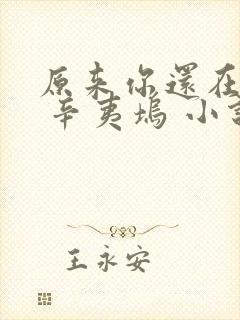 原來你還在
辛夷塢 小
王永安